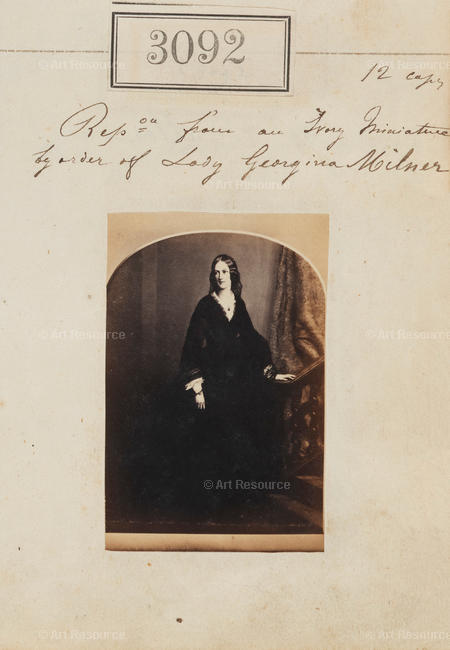 3092
12 copy
Rep.on from an Ivory Miniature
by order of Lady Georgina Milner
© Art Resource
© Art Resource
© Art Resource
© Art Resource
© Art Resource
© Art Resource
© Art Resource
© Art Resource
© Art Resource